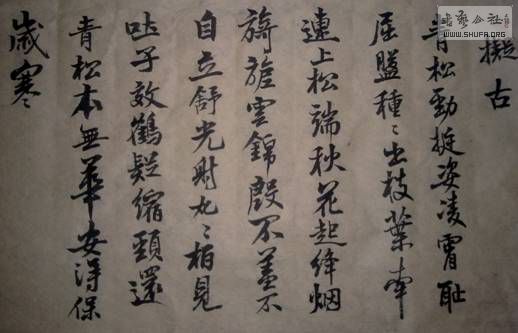 擬古
青松勁挺姿凌霄耻
屈盤種〻出枝葉牽
連上松端秋花起絳烟
旖旎雲錦殷不羞不
自立舒光射丸〻柏見
吐子效鶴疑縮頸還
青松本無華安得保
歲寒
書藝公社
WWW.SHUFA.ORG